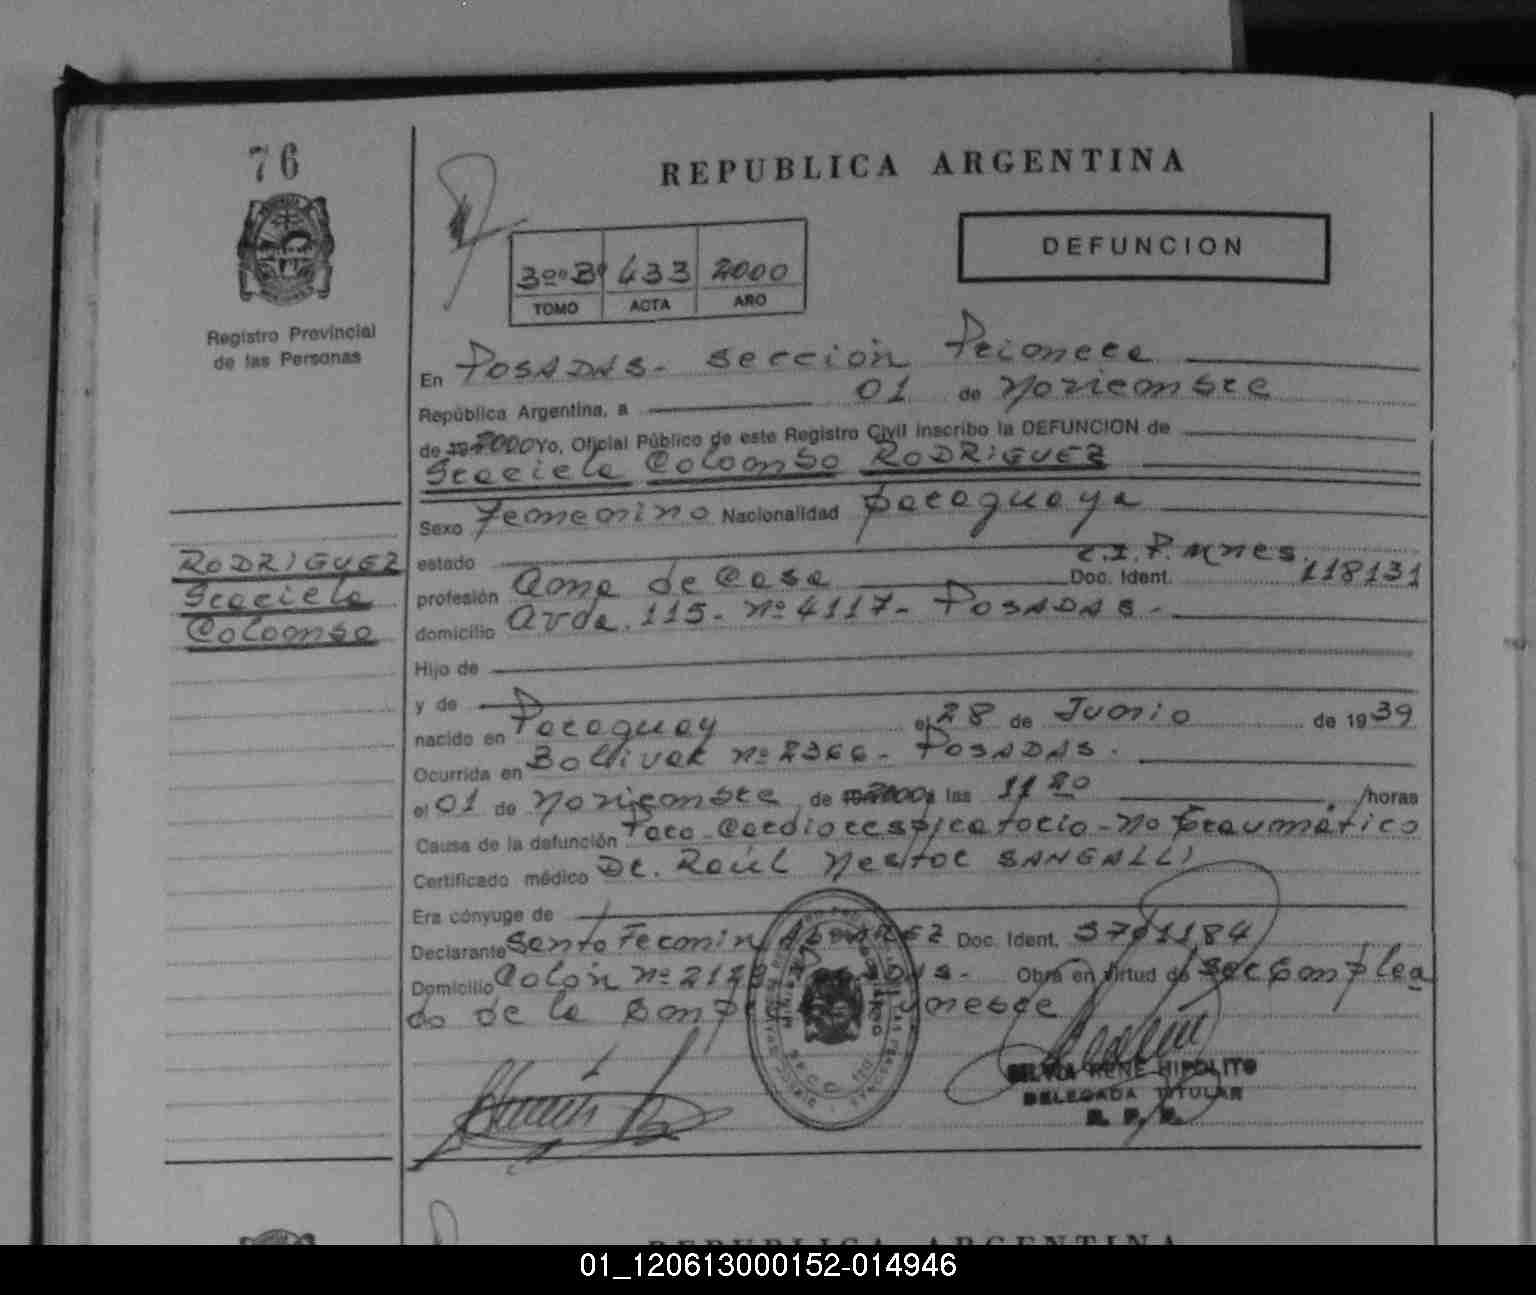 76
REPUBLICA ARGENTINA
DEFUNCION
3º Bº 433 2000
TOMO ACTA AÑO
Registro Provincial
de las Personas
En POSADAS. Sección Primera
República Argentina, a 01 de Noviembre
de 2000 Yo, Oficial Público de este Registro Civil inscribo la DEFUNCION de
Graciela Colombo RODRIGUEZ
Sexo Femenino Nacionalidad paraguaya
estado
C.I.P. Mnes.
profesión Ama de Casa Doc. Ident. 118131
domicilio Avda. 115- Nº 4117- POSADAS-
RODRIGUEZ
Graciela
Colombo
Hijo de
y de
nacido en Paraguay el 28 de Junio de 1939
Ocurrida en Bolivar Nº 2366- POSADAS.
el 01 de Noviembre de 2000 a las 11 20 horas
Causa de la defunción Paro-Cardiorespiratorio-no traumático
Certificado médico Dr. Raúl Nestor SANGALLI
Era cónyuge de
Declarante Santo Fermin Doc. Ident. 5701184
Domicilio Colón Nº Obra en virtud de ser emplea
do de la
SILVIA RENE HIPOLITO
DELEGADA TITULAR
R. P. P.
REPUBLICA ARGENTINA
01_120613000152-014946